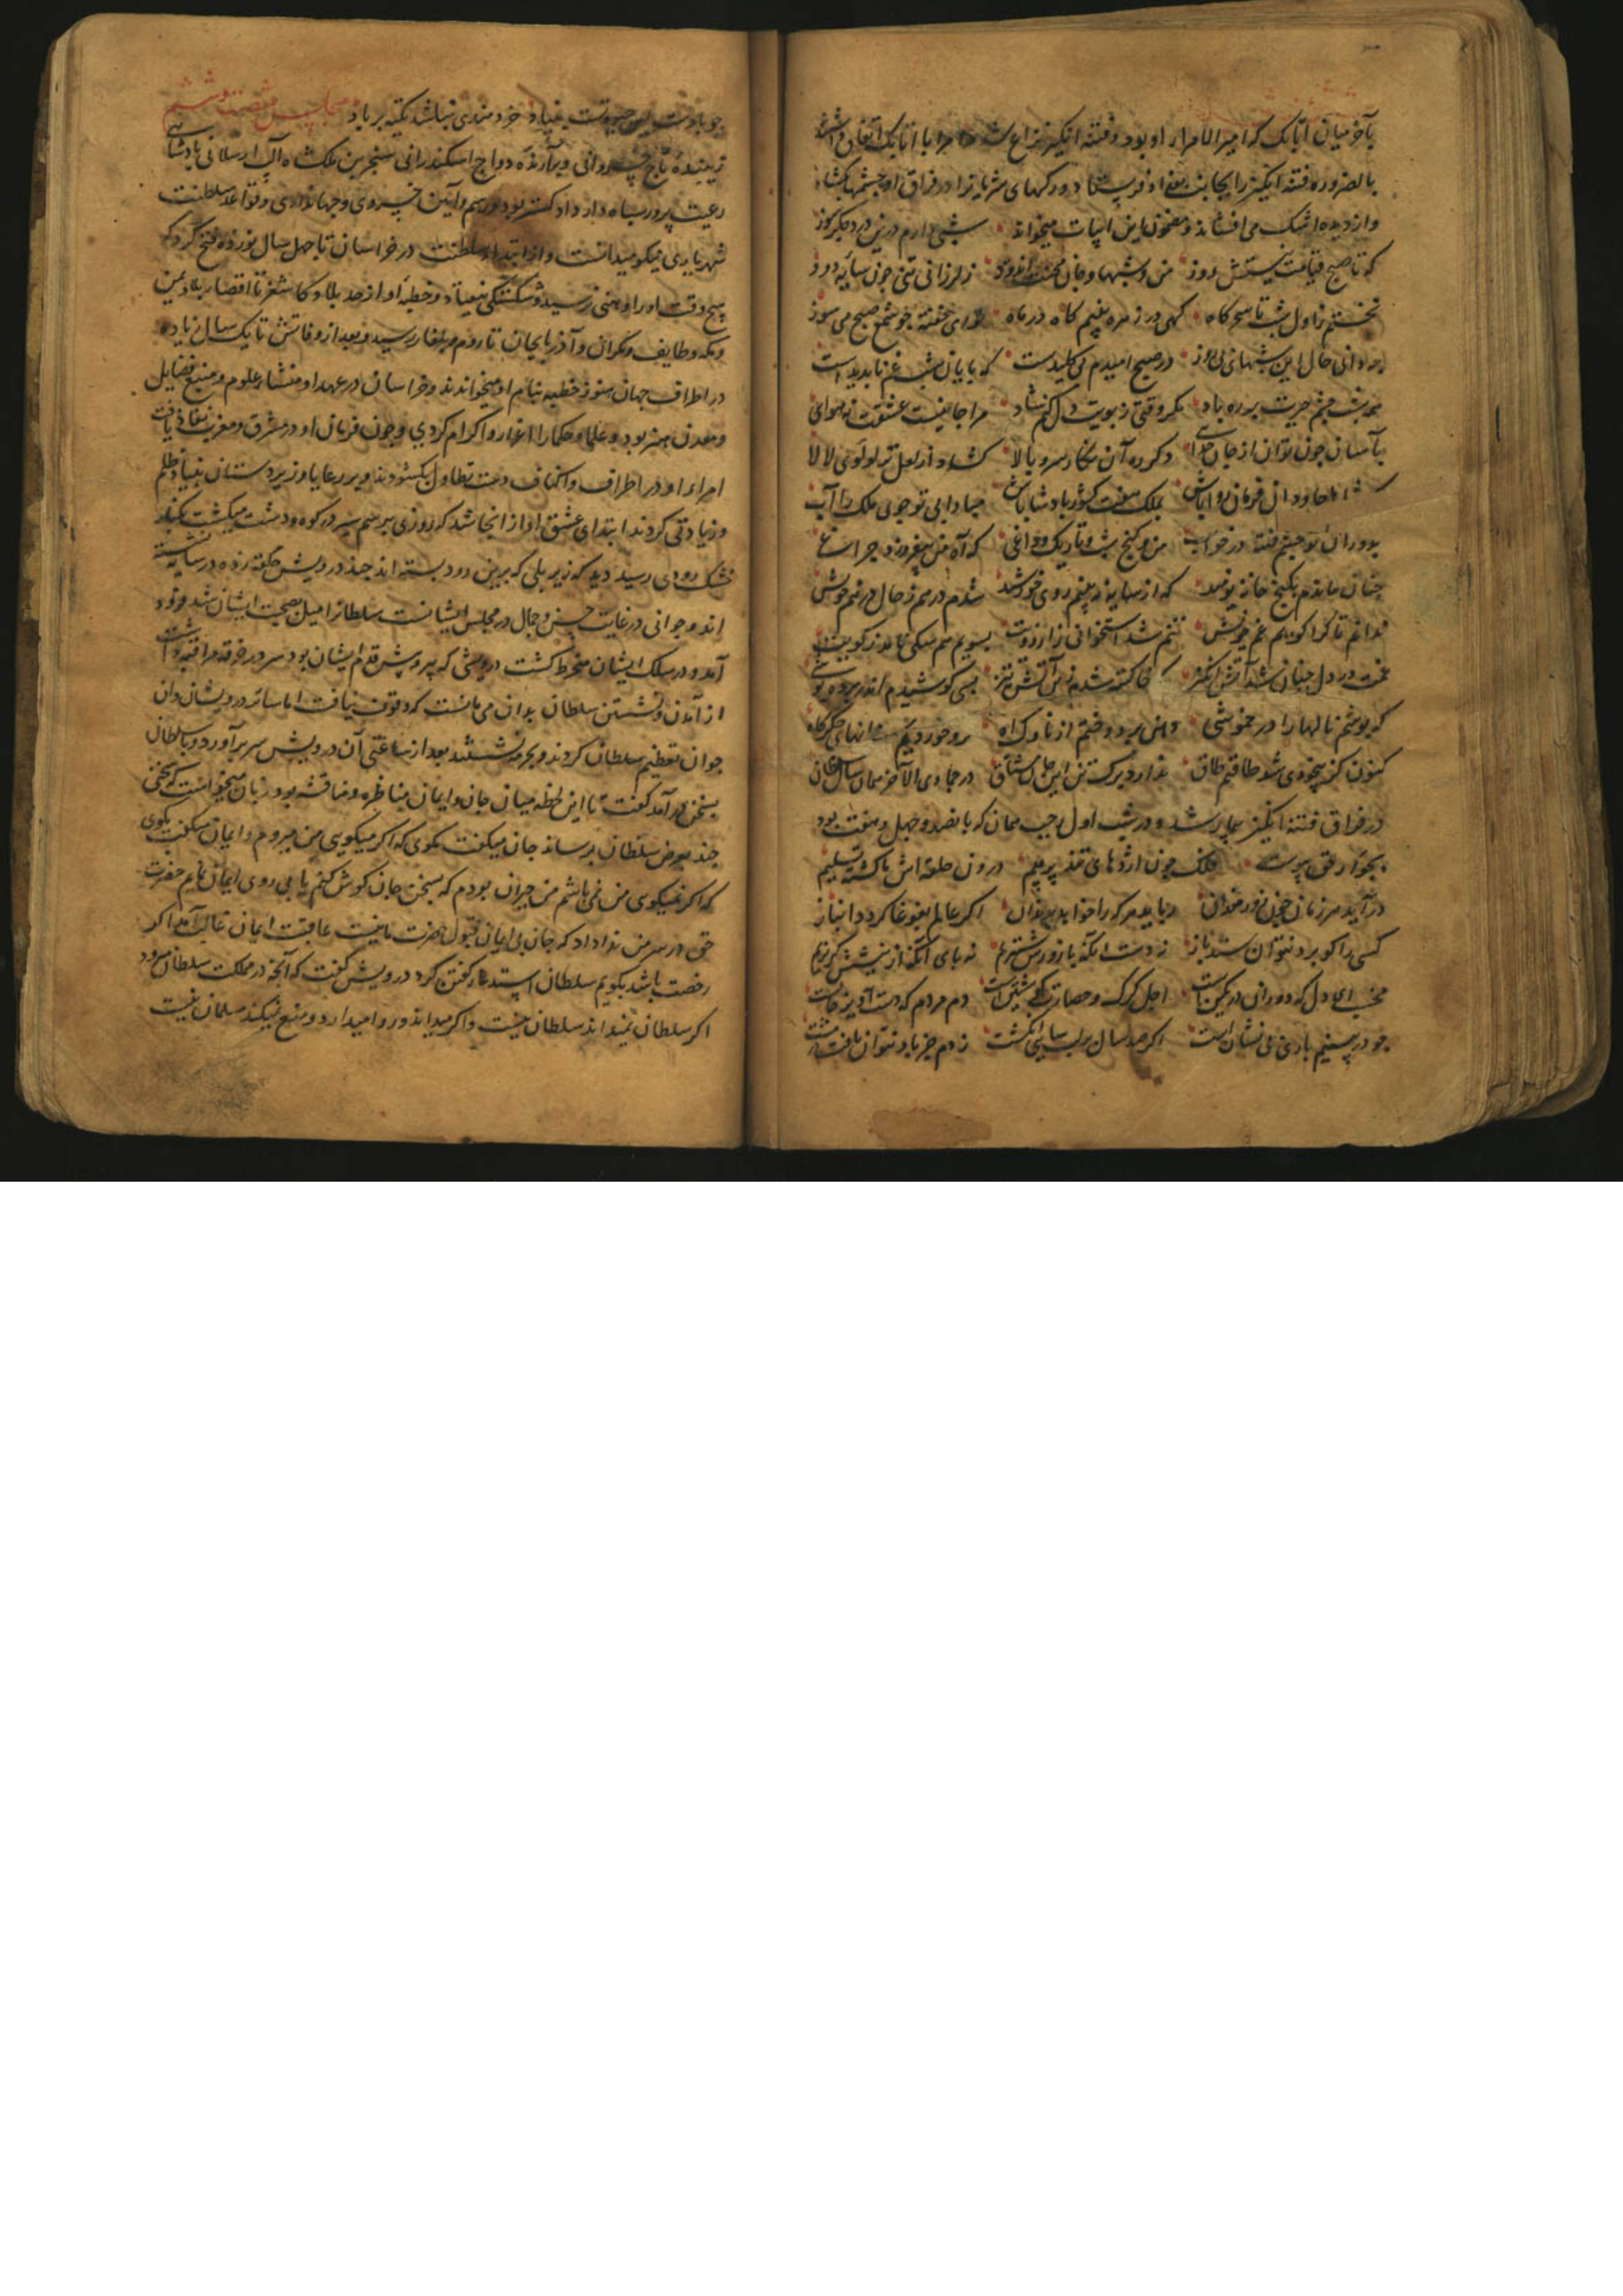 بآخر میان اتابک که امیر الامراء او بود و فتنه انگیز نزاع شد امرا با اتابک اتفاق داشتند
بالضروره فتنه انگیز را بجانب بغداد فرستاد و رکهای شریانرا در فراق او چشمها بکشاد
و از دیده اشک می افشاند و مضمون این ابیات میخواند شبی دارم درین درد جگرسوز
که تا صبح قیامت نیستش روز من و شبها و جان محنت اندود ز لرزانی تنی چون سایه دود
نخستم ز اول شب تا سحرگاه کهی در زهره بینم گاه در ماه تو ای خفته چو شمع صبح می سوز
چه دانی حال این شبهای بی روز در صبح امیدم بی کلیدست که پایان شب غم ناپدیدست
همه شب چشم حسرت بر ره باد مگر وقتی ز بویت دل کنم شاد مرا جانیست عشقت نه هوای
بآسان چون توان از جان جدایی دگر ره آن نگار سرو بالا کشاد از لعل تر لولوی لالا
شاها جاودان فرمان روا باش بملک هفت کشور پادشا باش مبادا بی تو جوی ملک را آب
بدوران تو چشم فتنه در خواب من و کنج شب و تاریک و داغی که آه من نیفروزد چراغ
چنان ماندم بکنج خانه نومید که از سایه نه بینم روی خورشید شدم درهم ز حال درهم خویش
ندانم تا کرا گویم غم خویش تنم شد استخوانی ز آرزویت بسویم هم سگی نامد ز کویت
غمت در دل چنان شد آتش انگیز که خاکستر شدم زین آتش تیز بسی کوشیدم اندر پرده پوشی
که پوشم نالها را در خموشی دهن بر دوختم از ناوک آه
کنون کز بیخودی شد طاقتم طاق ندارد برک تن این جان مشتاق در جمادی الآخر همان سال سلطان
در فراق فتنه انگیز بیمار شد و در شب اول رجب همان که پانصد و چهل و هفت بود
بجوار حق پیوست فلک چون اژدهای تند پر پیم درون حلقه اش با کشته تسلیم
در آید هر زمان چون زورمندان رباید هر که را خواهد بدندان اگر عالم بغوغا گردد انباز
کسی را کو برد نتوان ستد باز نه دست آنکه با زورش ستیزم نه پای آنکه از نیشش گریزم
مخسب ای دل که دوران در کمین است اجل گرگ و حصارت گوشتین است دم مردم که دست آویز جانست
چو در بینیم بادی بی نشان است اگر صد سال بر لب سایی انگشت ز دم جز باد نتوان یافت در مشت
چو بادست بس حیوتت بی بنیاد خردمندی نباشد تکیه بر باد مجلس شصت و ششم
زیبنده تاج خسروانی و برآزنده دواج اسکندرانی سنجر بن ملکشاه الب ارسلانی پادشاهی
رعیت پرور سپاه دار داد گستر بود و رسم و آیین خسروی و جهانداری و قواعد سلطنت
شهریاری نیکو میدانست و از ابتداء سلطنت در خراسان تا چهل سال نوزده فتح کرد که
هیچ وقت او را وهنی نرسید و شکستگی نیفتاد و خطبه او از حد بلاد کاشغر تا اقصاء بلاد یمن
و مکه و طایف و مکران و آذربایجان تا روم و بلغار رسید و بعد از وفاتش تا یک سال زیاده
در اطراف جهان هنوز خطبه بنام او میخواندند و خراسان در عهد او منشاء علوم و منبع فضایل
و معدن هنر بود و علما و حکما را اعزاز و اکرام کردی و چون فرمان او در مشرق و مغرب نفاذ یافت
امراء او در اطراف و اکناف دست تطاول بکشودند و بر رعایا و زیردستان بنیاد ظلم
و زیادتی کردند ابتدای عشق او از انجا شد که روزی برسم سیر در کوه و دشت میگشت بکنار
خشک رودی رسید دید که زیر پلی که برین رود بسته اند چند درویش حلقه زده در سایه نشسته
اند و جوانی در غایت حسن و جمال در مجلس ایشانست سلطانرا میل بصحبت ایشان شد فرود
آمد و در سلک ایشان منخرط گشت درویشی که پیر و پیش قدم ایشان بود سر در خرقه مراقبه داشت
از آمدن و نشستن سلطان بدان می مانست که وقوف نیافت اما سائر درویشان و ان
جوان تعظیم سلطان کردند و بحرمت نشستند بعد از ساعتی آن درویش سر برآورد و با سلطان
بسخن در آمد گفت تا این لحظه میان جان و ایمان مناظره و مناقشه بود زبان میخواست که سخنی
چند بعرض سلطان برساند جان میگفت مگوی که اگر میگویی من میروم و ایمان میگفت بگوی
که اگر نمیگوی من نمی باشم من حیران بودم که بسخن جان گوش کنم یا بی روی ایمان نمایم حضرت
حق در سر من ندا داد که جان بی ایمان قبول حضرت ما نیست عاقبت ایمان غالب آمد اگر
رخصت باشد بگویم سلطان استدعاء گفتن کرد درویش گفت که آنچه در مملکت سلطان میرود
اگر سلطان نمیداند سلطان نیست و اگر میداند و روا میدارد و منع نمیکند مسلمان نیست